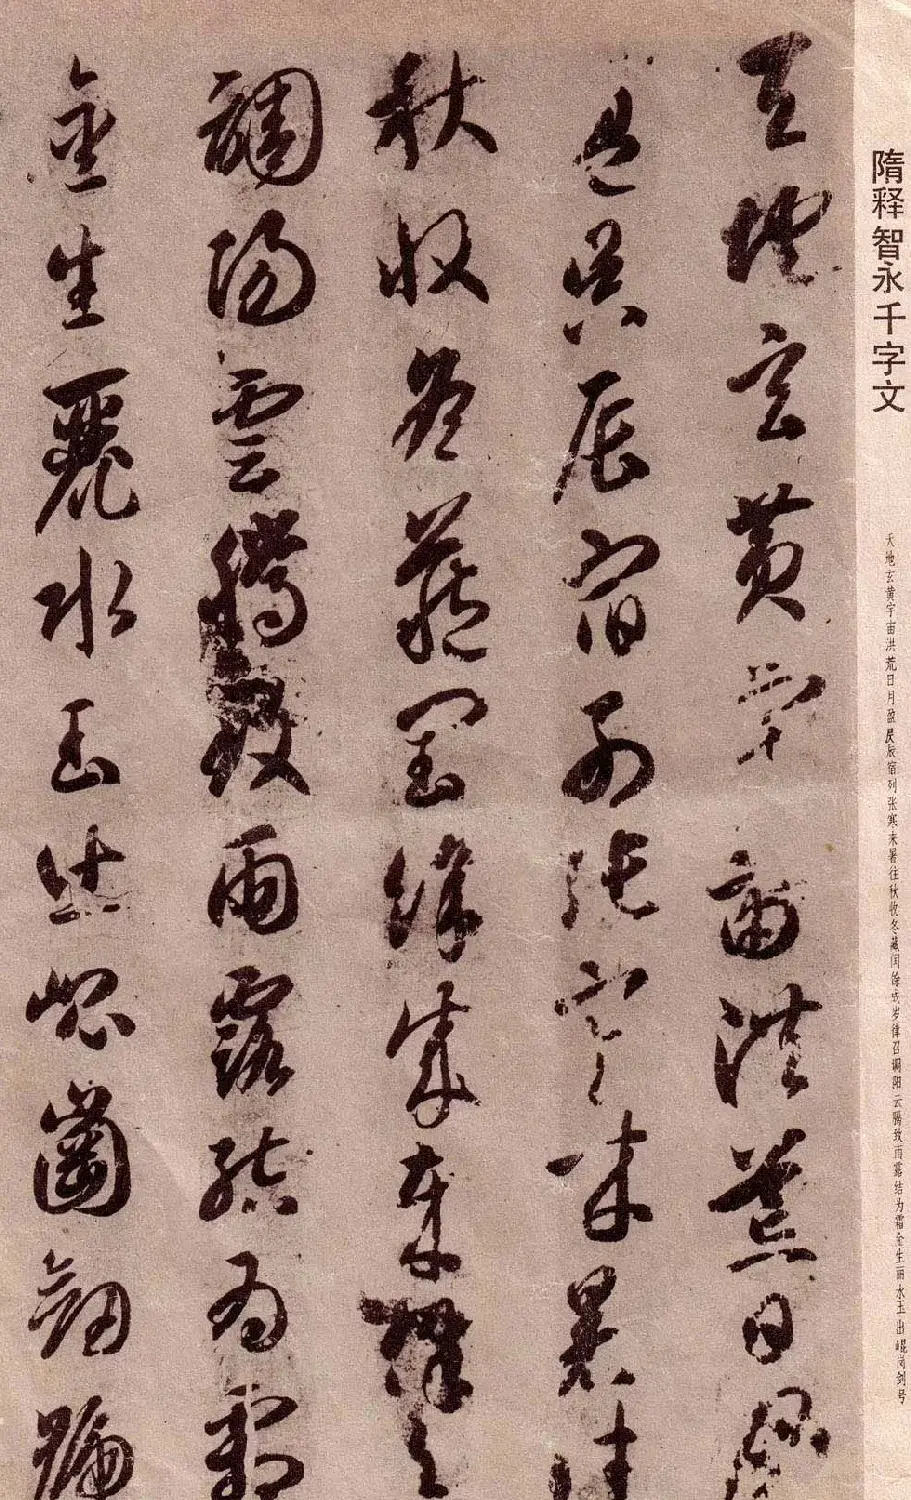 隋释智永千字文
天地玄黄宇宙洪荒日月盈昃辰宿列张寒来暑往秋收冬藏闰馀成岁律召调阳云腾致雨露结为霜金生丽水玉出崐岗剑号
天地玄黄宇宙洪荒日月
盈昃辰宿列張寒来暑往
秋收冬藏閏餘成歲律召
調陽雲騰致雨露結為霜
金生麗水玉出崐崗劒號